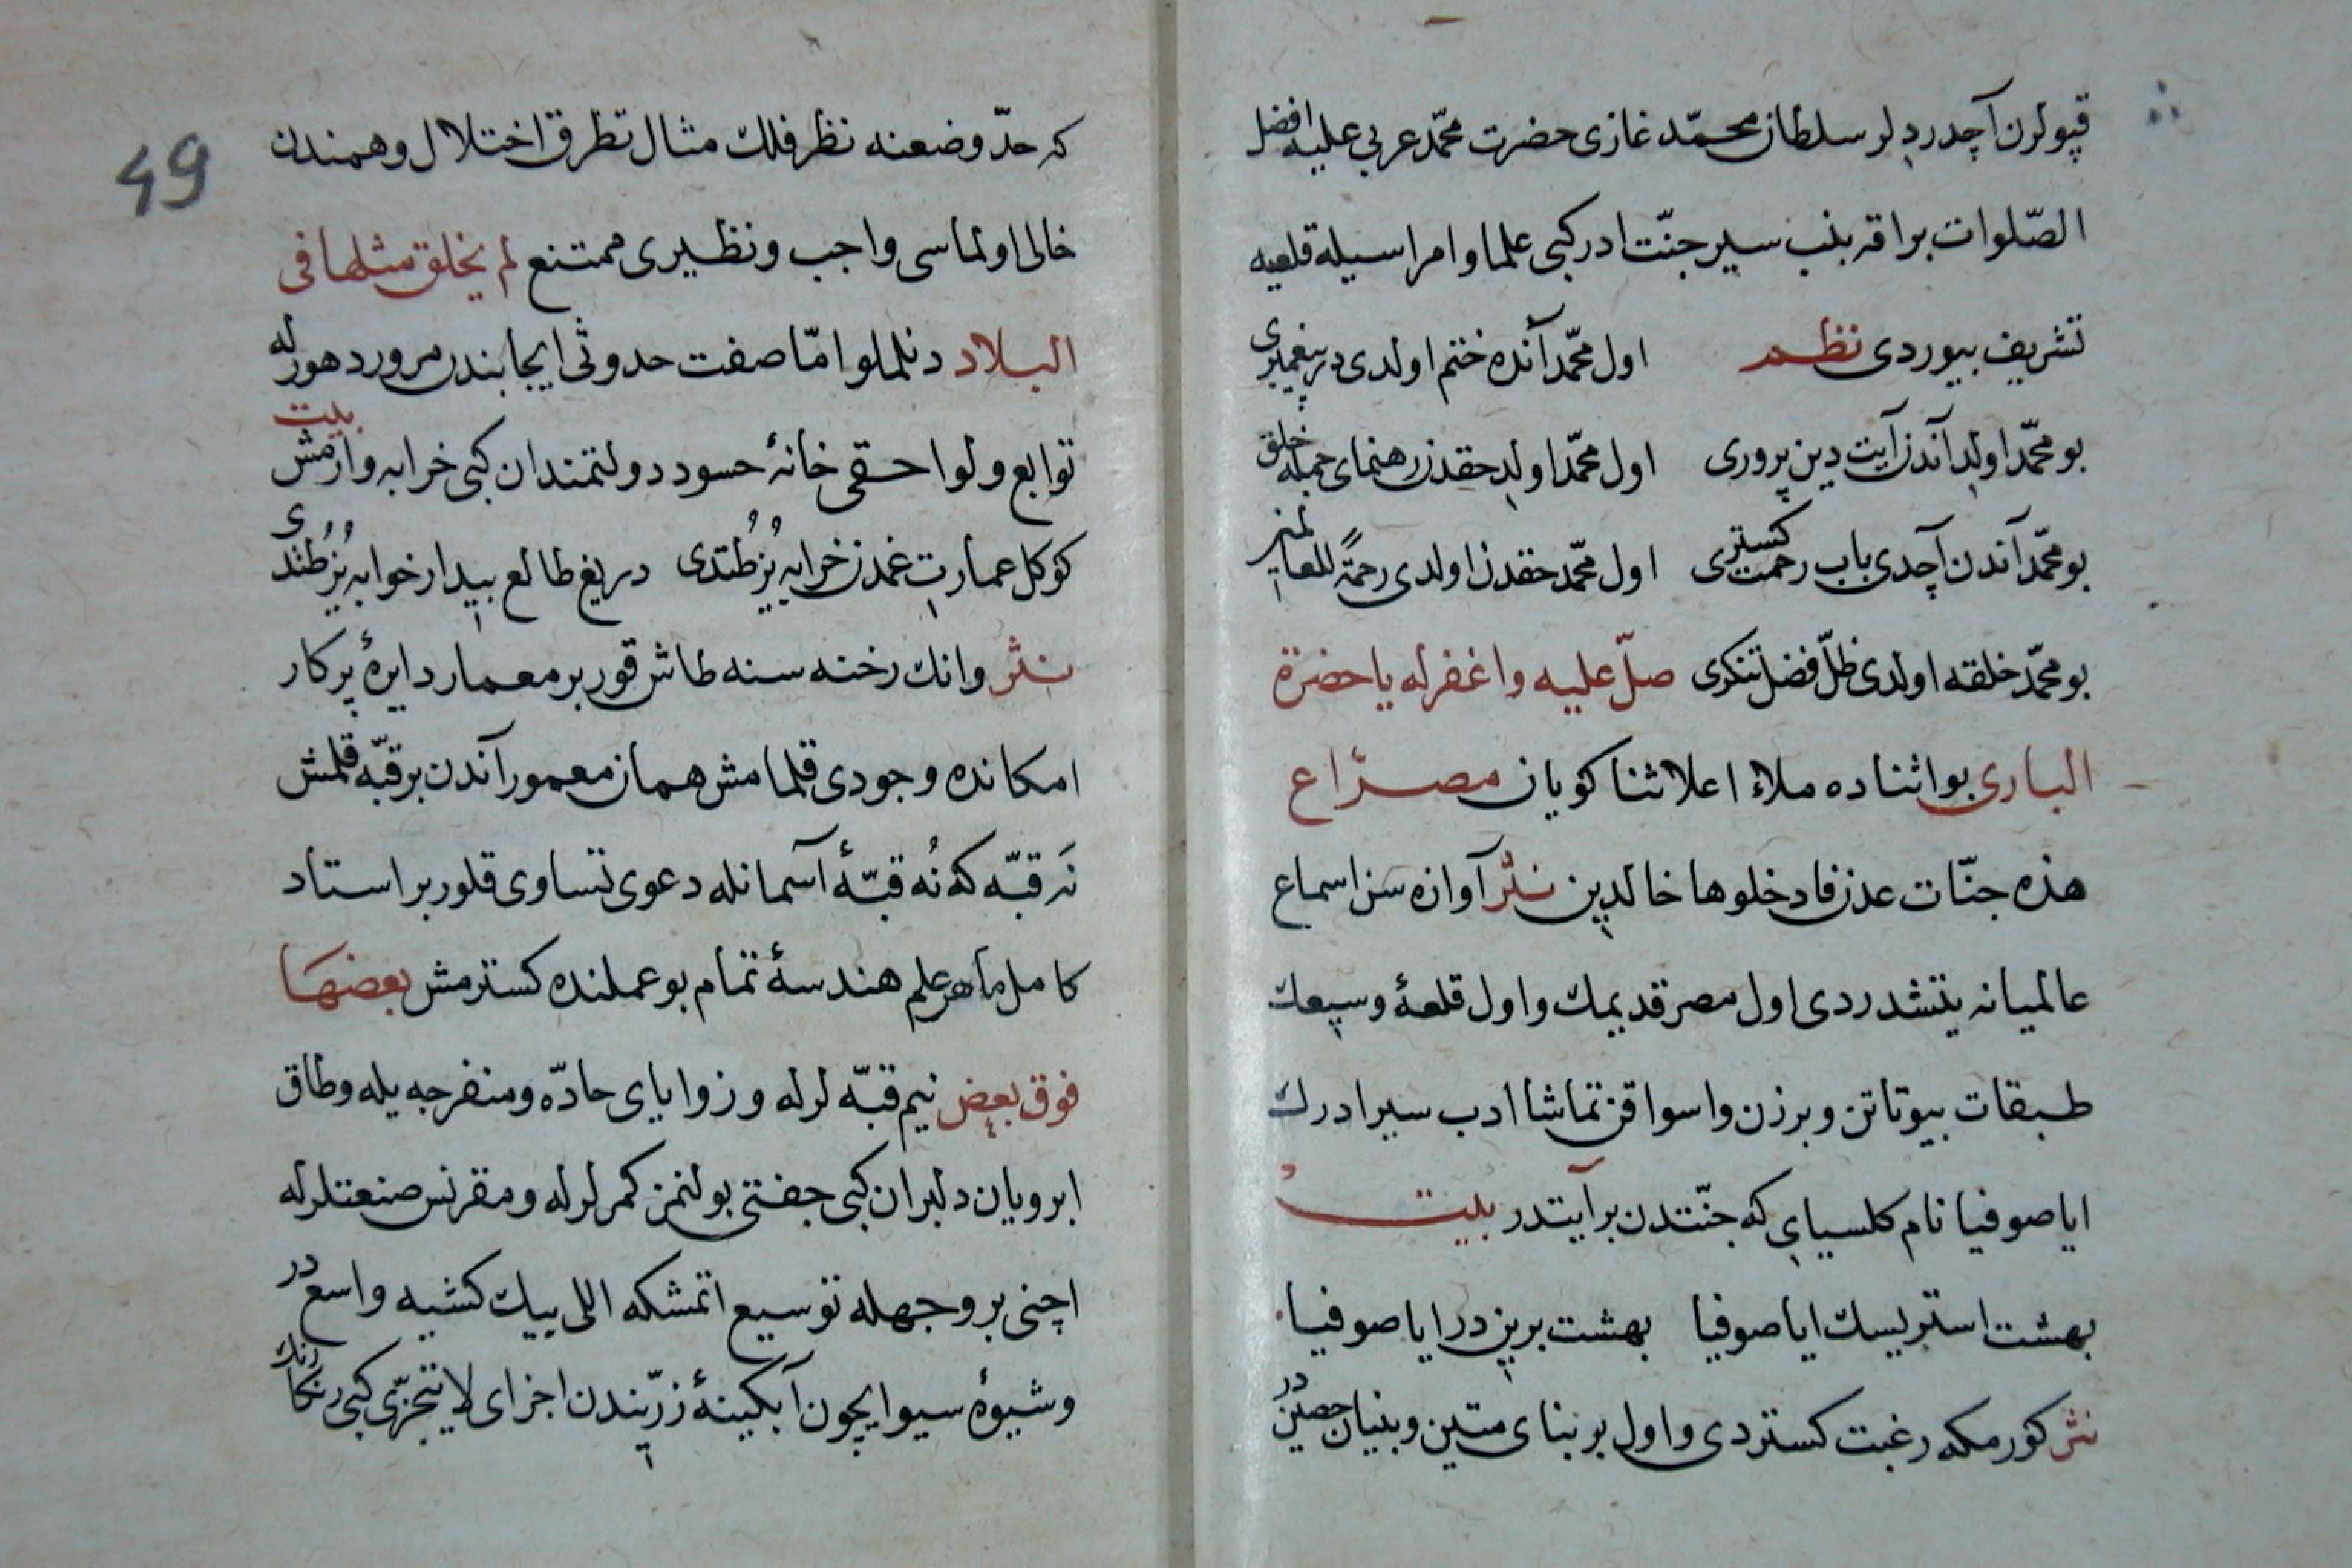 قپولرن آچدردلر سلطان محمّد غازی حضرت محمّد عربی علیه افضل
الصّلوات براقه بنب سیر جنّت ادر کبی علما و امرا سیله قلعیه
تشریف بیوردی نظم اول محمّد آنده ختم اولدی در پیغمبری
بو محمّد اولدِ آندن آیت دین پروری اول محمّد اولدِ حقدن رهنمای جمله خلق
بو محمّد آندن آچدی باب رحمت کستری اول محمّد حقدن اولدی رحمةً للعالمین
بو محمّد خلقه اولدی ظلّ فضل تنکری صلّ علیه واغفر له یا حضرة
الباری بو اثناده ملاء اعلا ثنا کویان مصرّاع
هذه جنّات عدن فادخلوها خالدین نثر آوازه سن اسماع
عالمیانه یتشدردی اول مصر قدیمك و اول قلعهٔ وسیعك
طبقات بیوتاتن و برزن و اسواقن تماشا ادب سیر ادرك
ایا صوفیا نام کلسیایِ که جنّتدن بر آیتدر بیت
بهشت استریسك ایا صوفیا بهشت برین در ایا صوفیا
نثر کورمکه رغبت کستردی و اول بر بنای متین و بنیان حصین در
49
که حدّ وضعنه نظر فلك مثال تطرق اختلال و همندن
خالی اولماسی واجب و نظیری ممتنع لم یخلق مثلها فی
البلاد دنلملو امّا صفت حدوثی ایجابندن مرور دهور له
توابع و لواحقی خانهٔ حسود دولتمندان کبی خرابه وارمش بیت
کوکل عمارتِ غمدن خرابه یُزطُتدی دریغ طالع بیدار خوابه یُزطُتدی
نثر وانك رخنه سنه طاش قور بر معمار دایرهٔ پرکار
امکانده وجودی قلمامش همان معمور آندن بر قبّه قلمش
نَه قبّه که نُه قبّهٔ آسمانله دعوی تساوی قلور بر استاد
کامل ماهر علم هندسهٔ تمام بو عملنده کسترمش بعضهَا
فوق بعض نیم قبّه لرله و زوایای حادّه و منفرجه یله و طاق
ابرویان دلبران کبی جفتی بولنمز کمرلرله و مقرنس صنعتلرله
اچنی بر وجهله توسیع اتمشکه اللی بیك کشیه واسع در
و شیوهٔ سیوا یچون آبکینهٔ زرّیندن اجزای لا یتجزّی کبی رنکا رنك